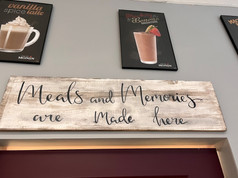 vanilla
spice latte
Meals and Memories
are made here